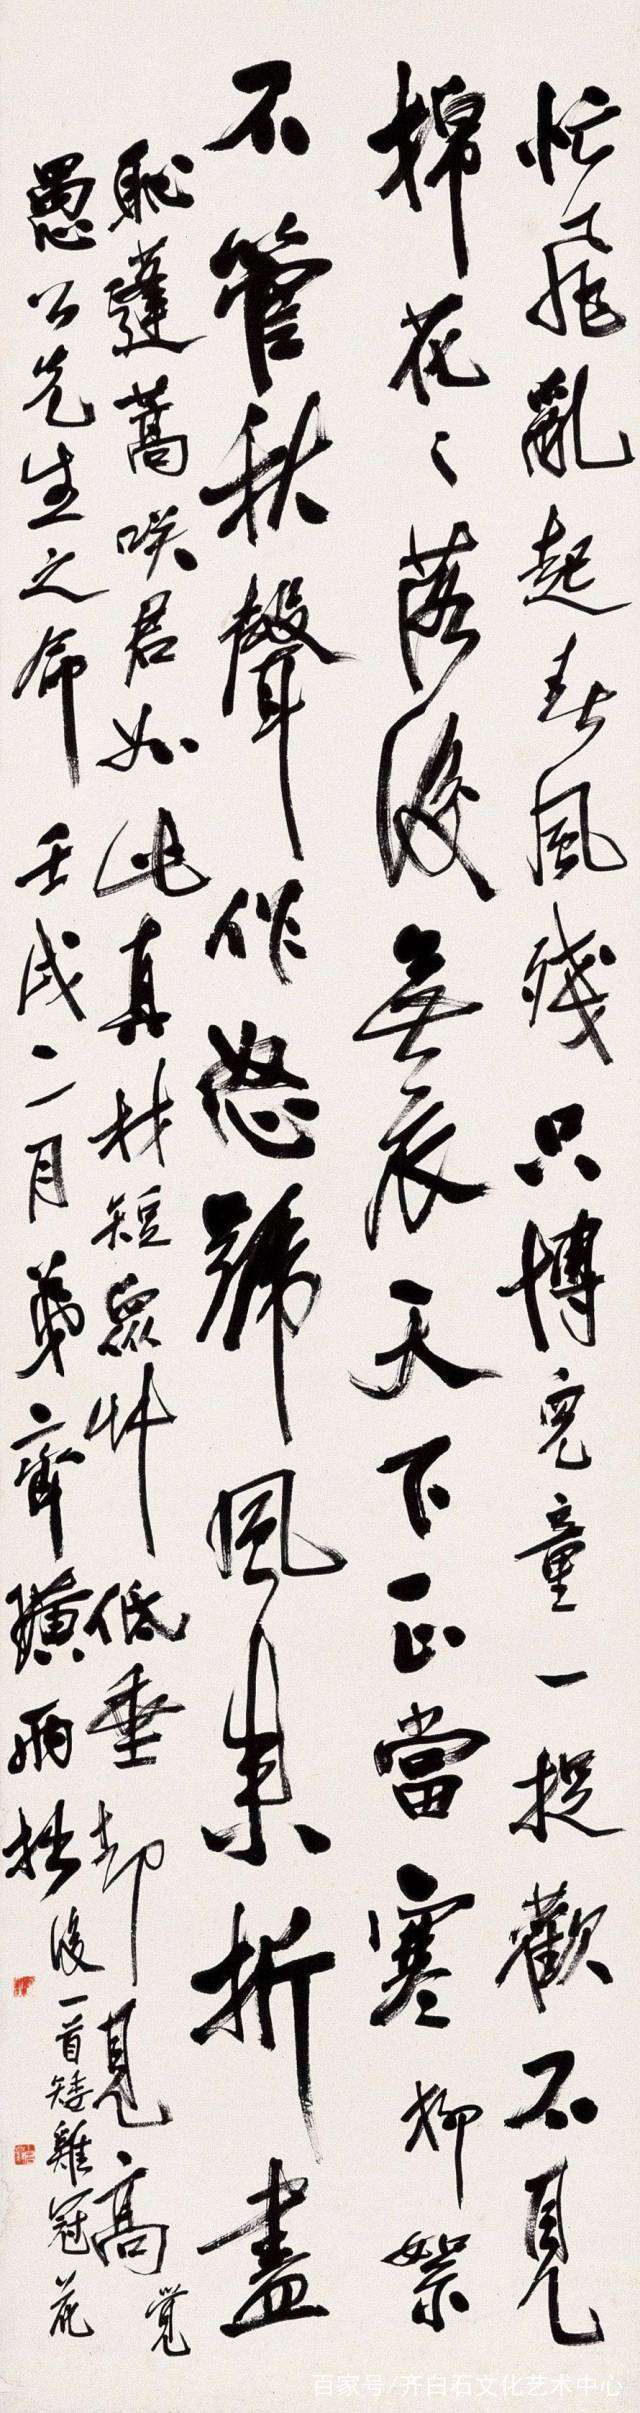 忙飛亂起春風殘只博兒童一捉歡不見
棉花花落後無衣天下正當寒柳絮
不管秋聲作怒號風來折盡
恥蓬蒿笑君如此真材短眾草低垂却見高 覺
愚公先生之命壬戌二月弟齊璜丙拙
後一首矮雞冠花
百家号/齐白石文化艺术中心